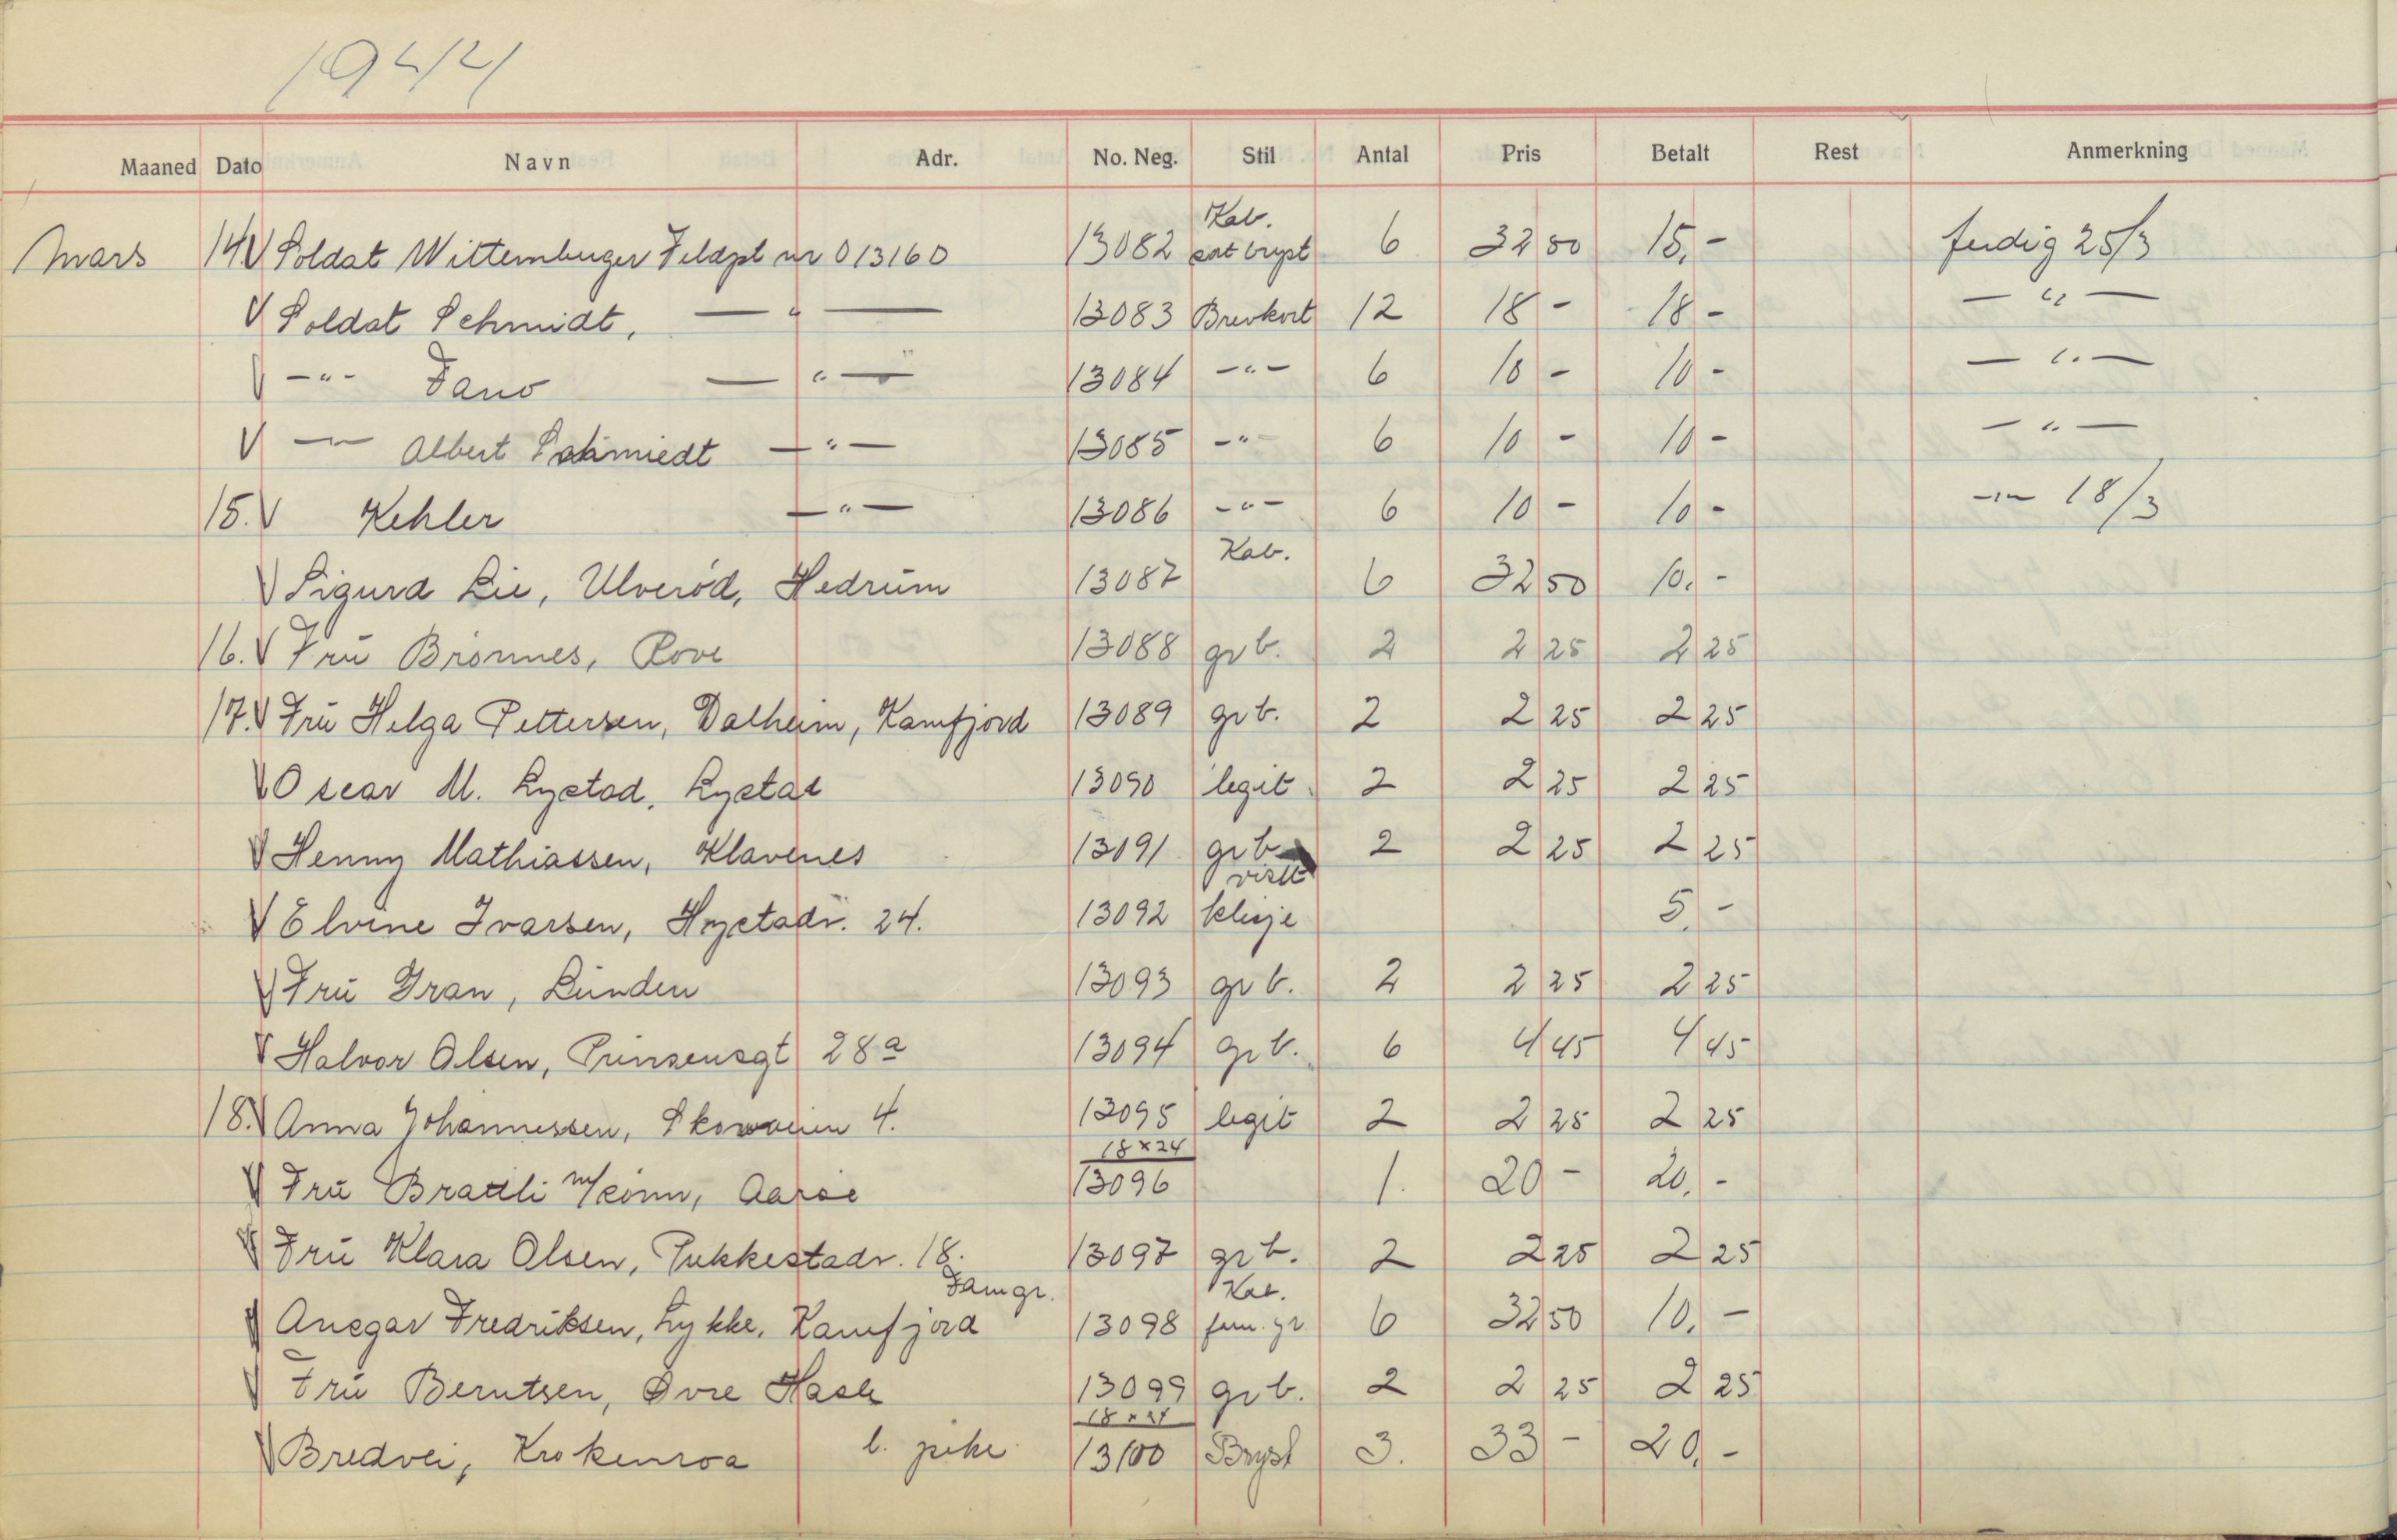 1944
Maaned Dato Navn Adr. No. Neg. Stil Antal Pris Betalt Rest Anmerkning
Kab.
Mars 14. V Soldat Wittemburger Feldpt nr 013160 13082 sort bryst 6 32 50 15,- ferdig 25/3
V Soldat Schmidt, — " — 13083 Brevkort 12 18 - 18 - — " —
V - " - Fano — " — 13084 - " - 6 10 - 10 - — " —
V — " — Albert Schmiedt — " — 13085 - " - 6 10 - 10 - — " —
15. V Kehler — " — 13086 - " - 6 10 - 10 - - " - 18/3
Kab.
V Sigurd Lie, Ulverød, Hedrum 13087 6 32 50 10,-
16. V Fru Brønnes, Rove 13088 gr b. 2 2 25 2 25
17. V Fru Helga Pettersen, Dalheim, Kamfjord 13089 gr b. 2 2 25 2 25
V Oscar M. Lystad, Lystad 13090 legit 2 2 25 2 25
V Henny Mathiassen, Klavenes 13091 gr b 2 2 25 2 25
visit
V Elvine Ivarsen, Hystadv. 24. 13092 klisje 5,-
V Fru Gran, Lunden 13093 gr b. 2 2 25 2 25
V Halvor Olsen, Prinsensgt 28a 13094 gr b. 6 4 45 4 45
18. V Anna Johannessen, 4. 13095 legit 2 2 25 2 25
18 x 24
V Fru Brattli m/sønn, Aarøe 13096 1. 20 - 20,-
V Fru Klara Olsen, Pukkestadv. 18. 13097 gr b. 2 2 25 2 25
Fam gr. Kab.
V Ansgar Fredriksen, Lykke, Kamfjord 13098 fam. gr 6 32 50 10,-
V Fru Berntsen, Øvre Hasle 13099 gr b. 2 2 25 2 25
18 x 24
V Bredvei, Krokenroa l. pike 13100 Bryst 3. 33 - 20,-